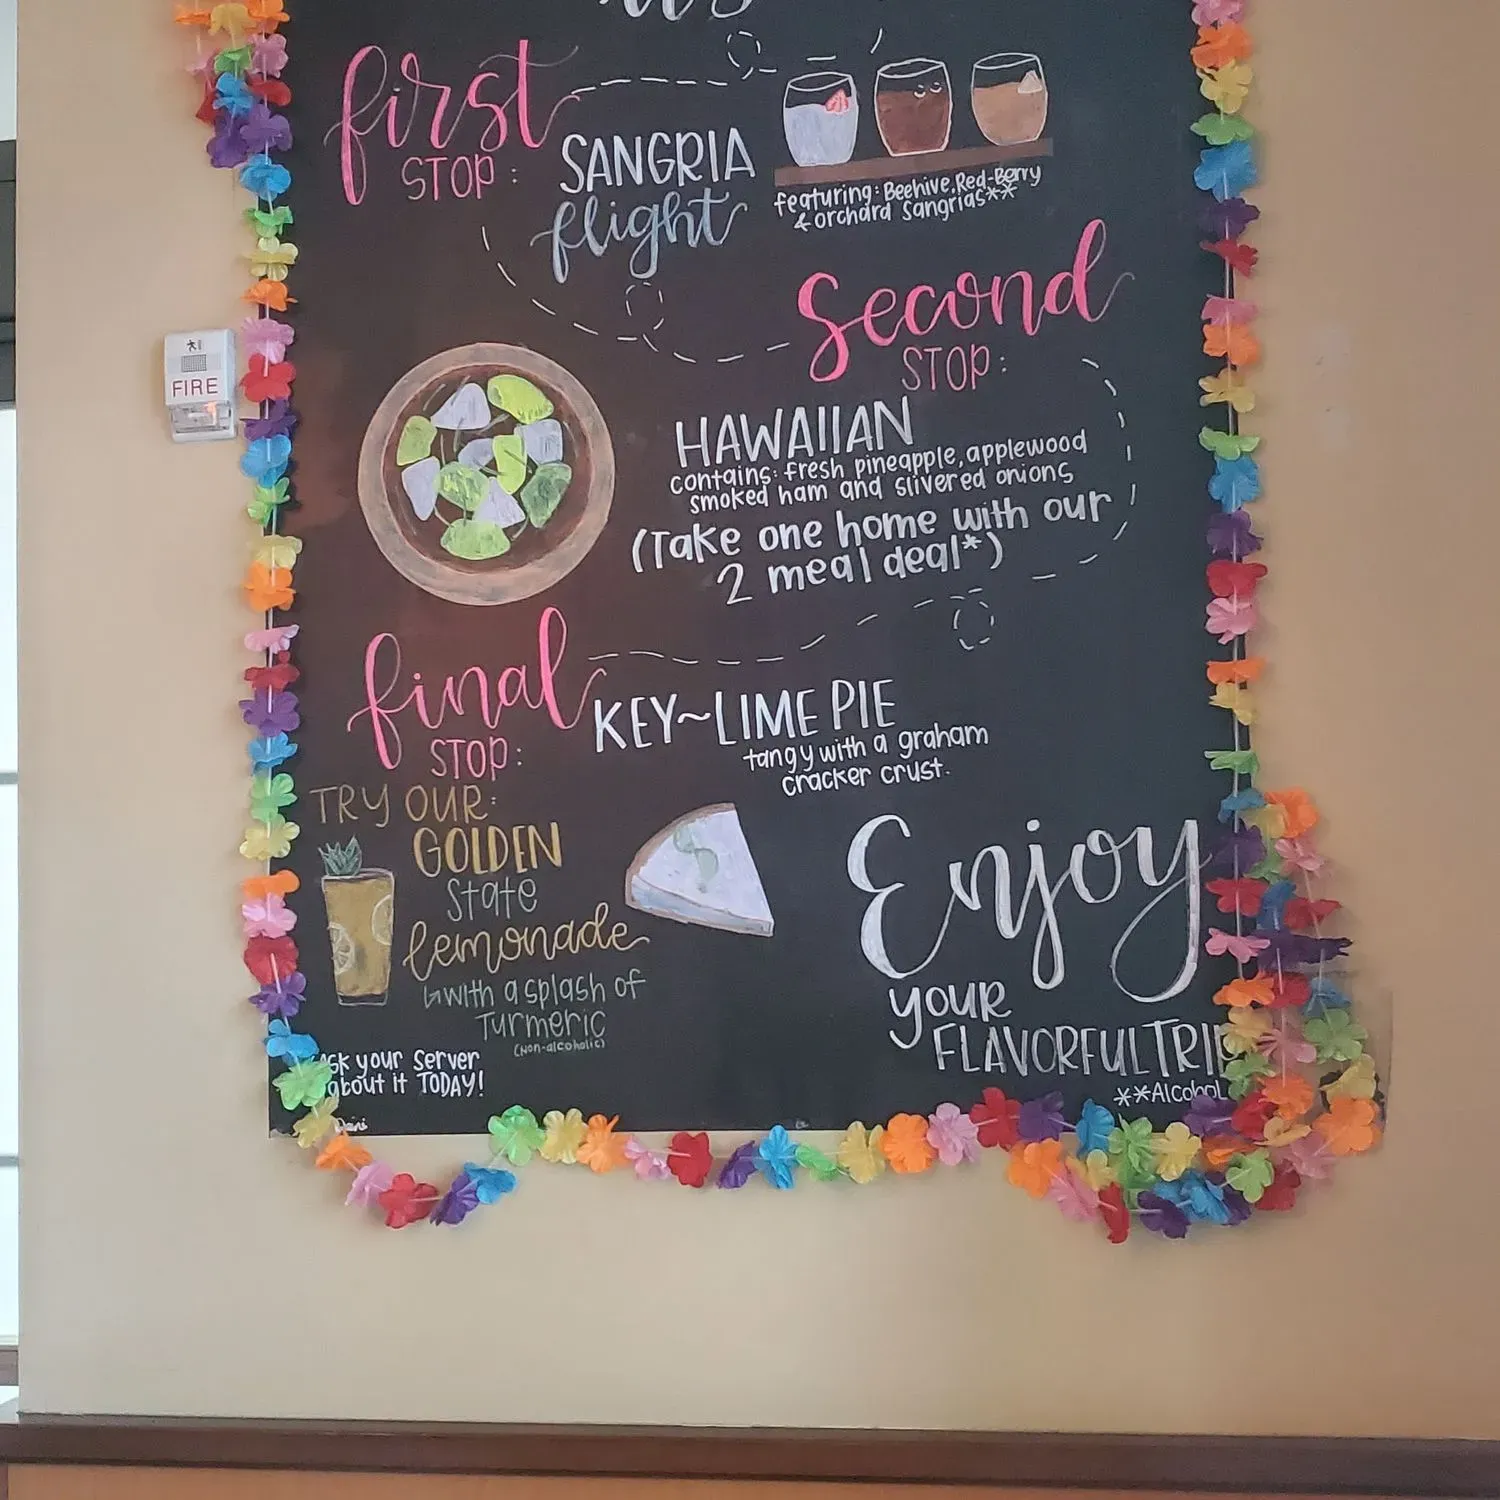 first
STOP:
SANGRIA
flight
featuring: Beehive, Red-Berry
& orchard Sangrias**
Second
STOP:
HAWAIIAN
contains: fresh pineapple, applewood
smoked ham and slivered onions
(Take one home with our
2 meal deal*)
final
STOP:
KEY~LIME PIE
tangy with a graham
cracker crust.
TRY OUR:
GOLDEN
State
lemonade
↳with a splash of
Turmeric
(Non-alcoholic)
Ask your Server
about it TODAY!
Enjoy
your
FLAVORFUL TRIP
**Alcohol
FIRE